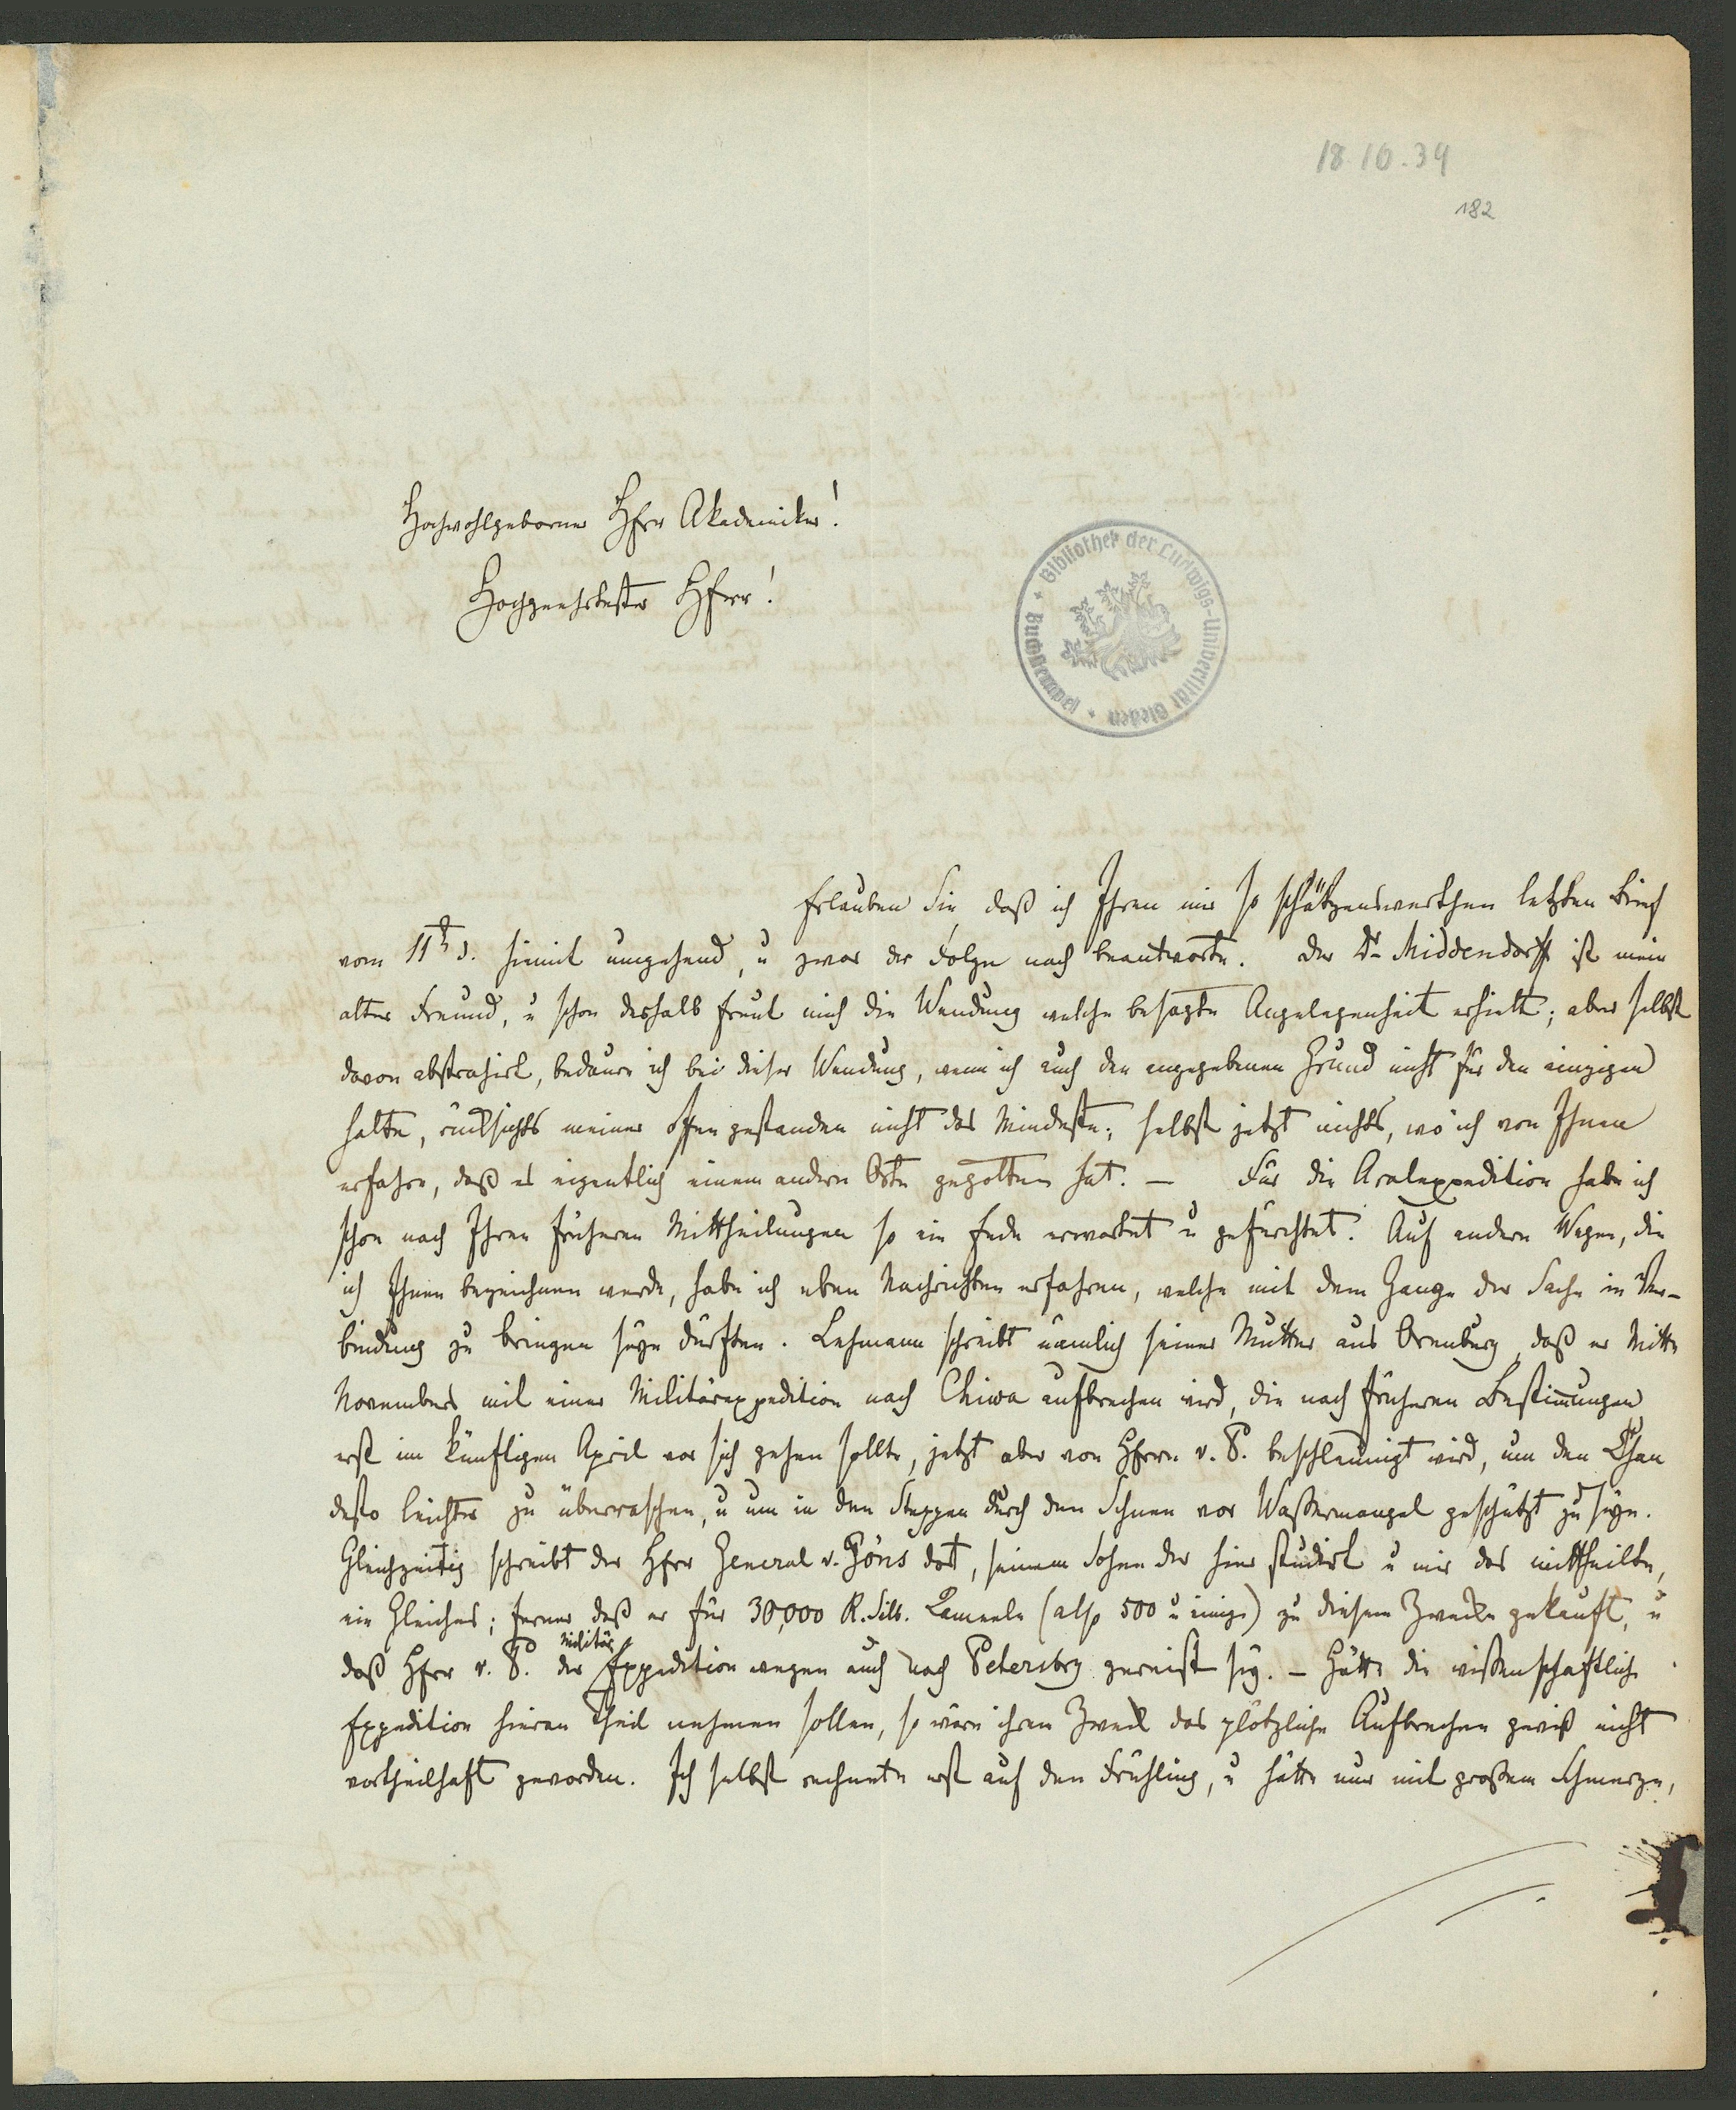 18.10.39
182
Hochwohlgeborner Herr Akademiker!
Hochgeehrtester Herr!
Bibliothek der Ludwigs-Universität Gießen * Buchstempel *
Erlauben Sie, daß ich Ihren mir so schätzenswerthen letzten Brief
vom 11t d. hiemit umgehend, u zwar der Folge nach beantworte. Der Dr Middendorff ist mein
alter Freund, u schon deshalb freut mich die Wendung welche besagte Angelegenheit erhielt; aber selbst
davon abstrahirt, bedaure ich bei dieser Wendung, wenn ich auch den angegebenen Grund nicht für den einzigen
halte, rücksichts meiner offen gestanden nicht das Mindeste; selbst jetzt nichts, wo ich von Ihnen
erfahre, daß es eigentlich einem andern Orte gegolten hat. — Für die Aralexpedition habe ich
schon nach Ihren früheren Mittheilungen so ein Ende erwartet u gefürchtet. Auf andern Wegen, die
ich Ihnen bezeichnen werde, habe ich eben Nachrichten erfahren, welche mit dem Gange der Sache in Ver-
bindung zu bringen seyn dürften. Lehmann schreibt nämlich seiner Mutter aus Orenburg, daß er Mitte
Novembers mit einer Militärexpedition nach Chiwa aufbrechen wird, die nach früheren Bestimungen
erst im künftigen April vor sich gehen sollte, jetzt aber von Herrn v. P. beschleunigt wird, um den Chan
desto leichter zu überraschen, u um in den Steppen durch den Schnee vor Waßermangel geschützt zu seyn.
Gleichzeitig schreibt der Herr General v. Göns dort, seinem Sohne der hier studirt u mir das mittheilte,
ein Gleiches; ferner daß er für 30,000 R. Silb. Kameele (also 500 u einige) zu diesem Zwecke gekauft, u
daß Herr v. P. der Militär Expedition wegen auch nach Petersbrg gereist sey. – Hätte die wißenschaftliche
Expedition hieran Theil nehmen sollen, so wäre ihrem Zweck das plötzliche Aufbrechen gewiß nicht
vortheilhaft geworden. Ich selbst rechnete erst auf den Frühling, u hätte nur mit großem Schmerze,